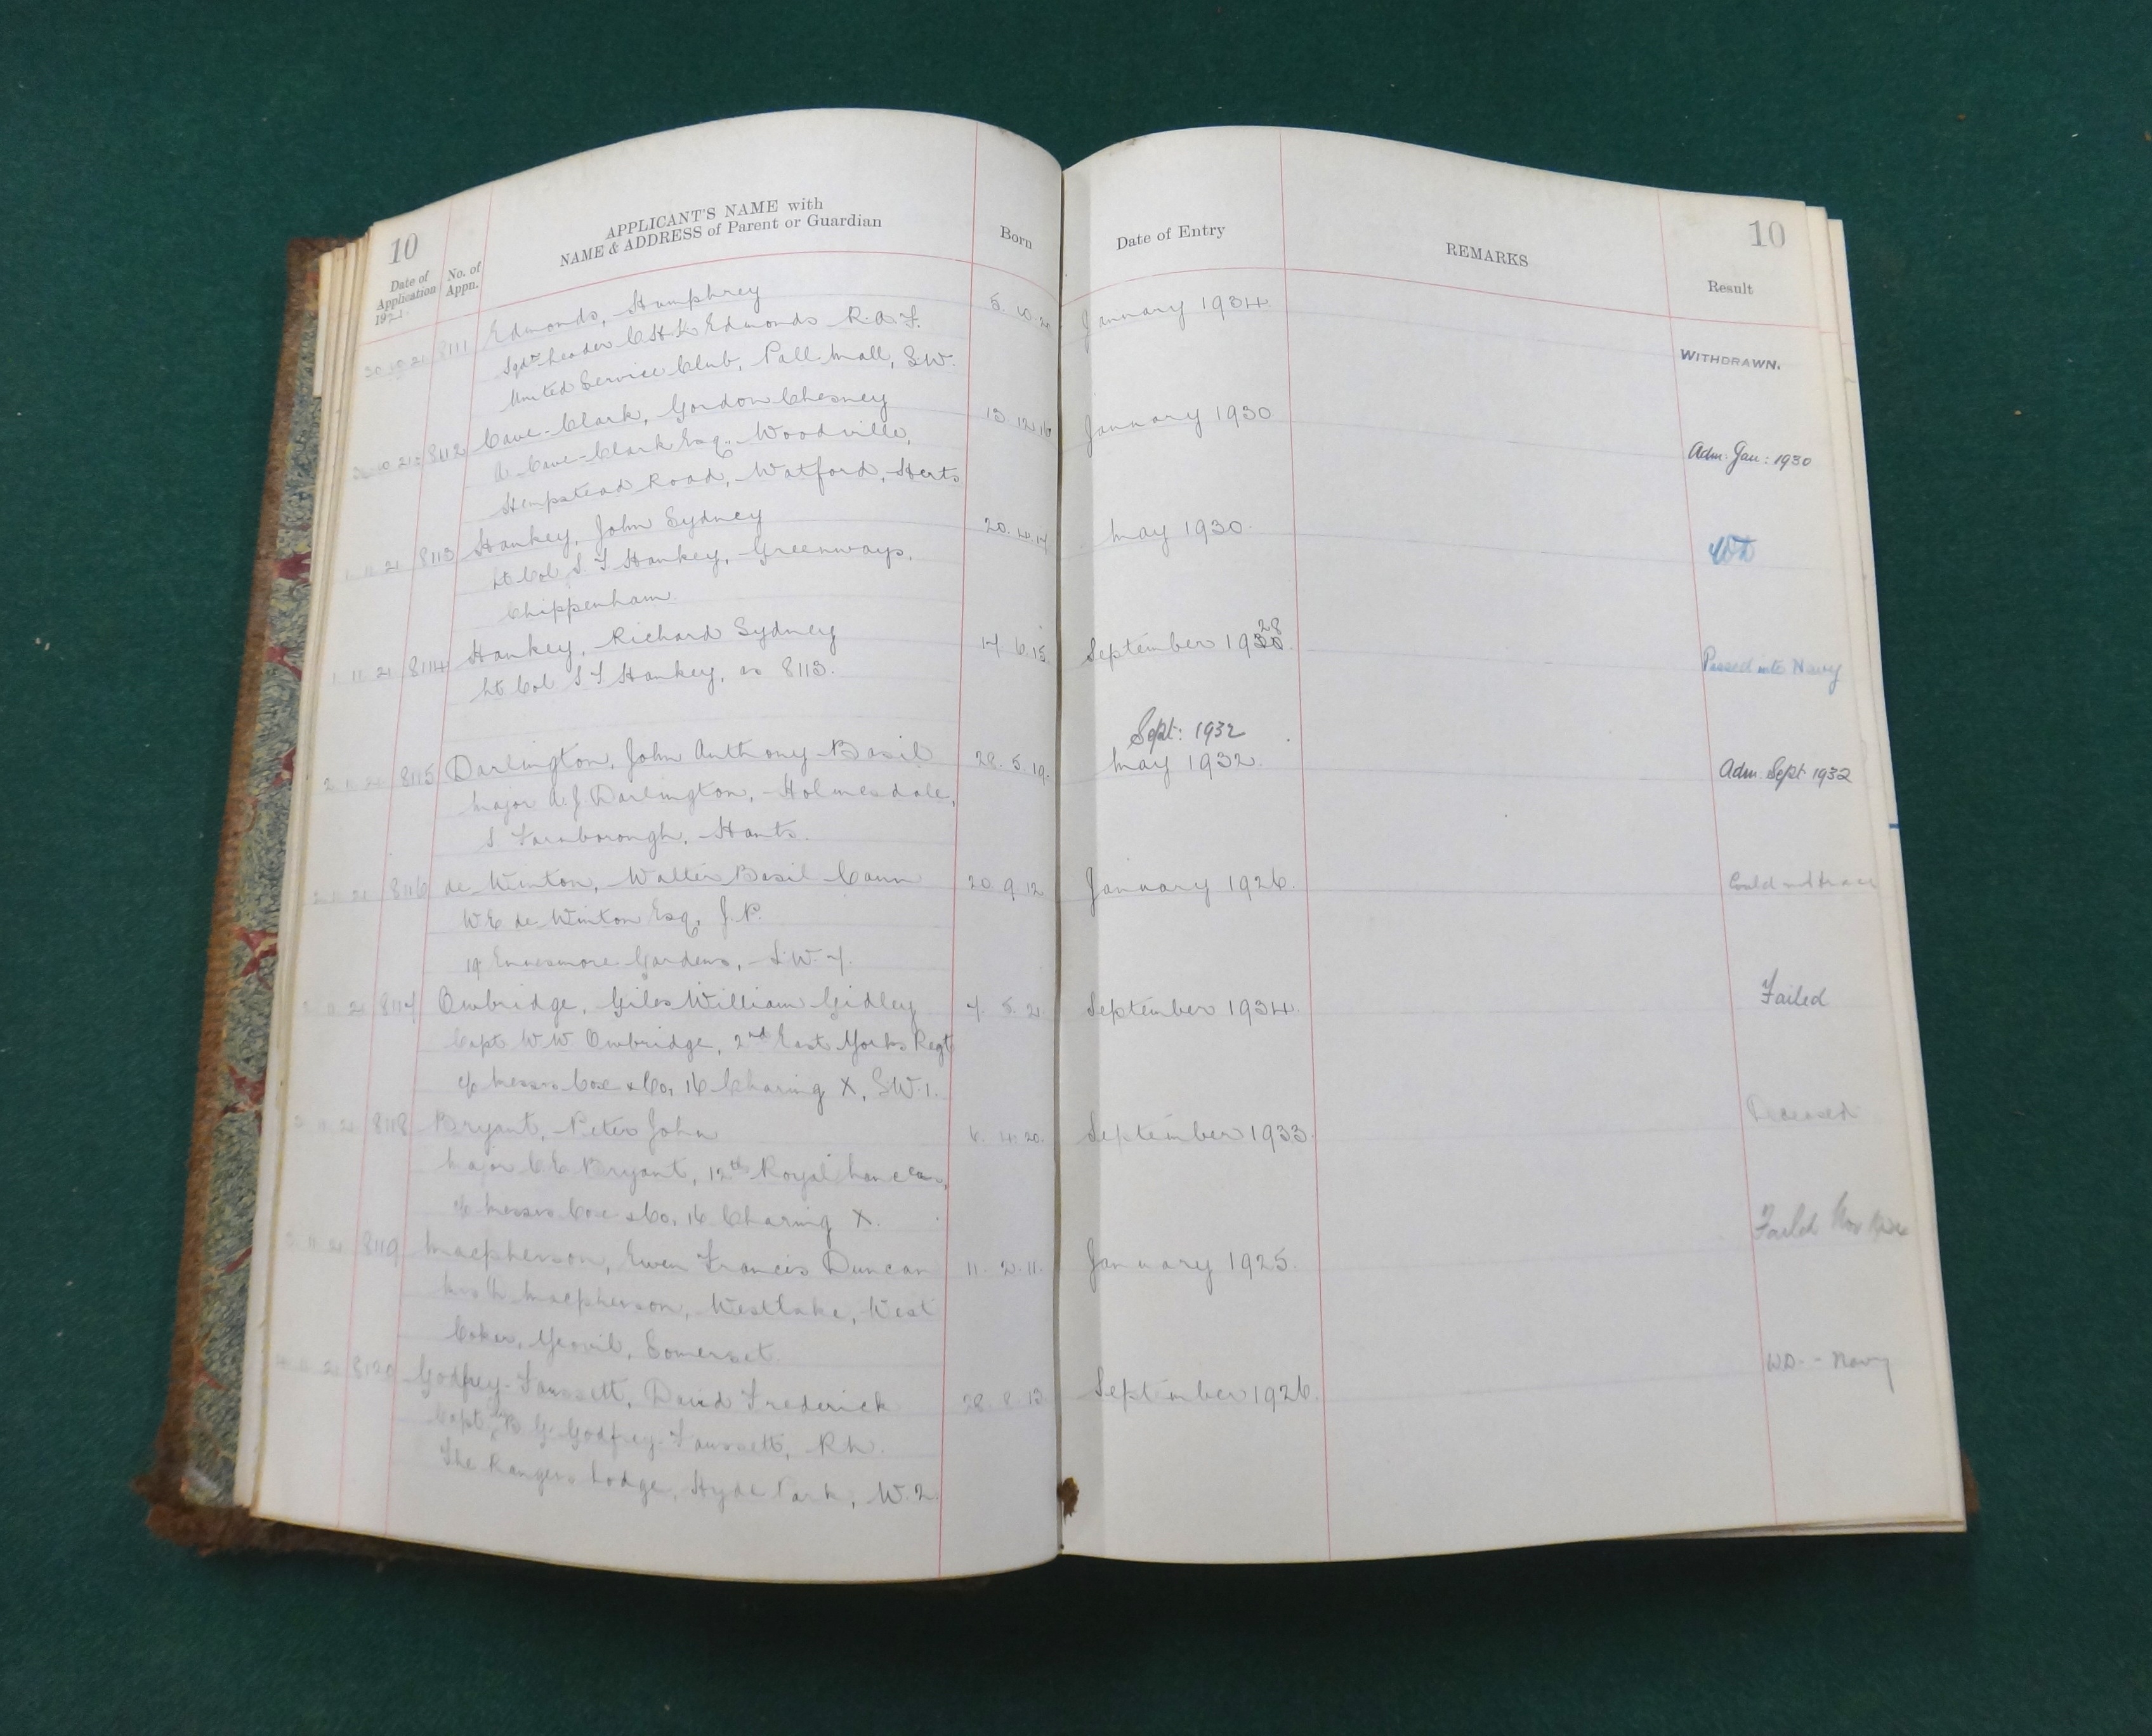 10
Date of Application 1921
No. of Appn.
APPLICANT'S NAME with
NAME & ADDRESS of Parent or Guardian
Born
Date of Entry
REMARKS
10
Result
30 10 21 8111 Edmonds, Humphrey 5. 10. January 1934.
Sqdn Leader C.H.K. Edmonds R.A.F.
United Service Club, Pall Mall, S.W.
WITHDRAWN.
10 21 8112 Cave-Clark, Gordon Chesney 13. 12. 16 January 1930
Cave-Clark Esq., Woodville,
Hempstead Road, Watford, Herts
Adm. Jan: 1930
1 11 21 8113 Hankey, John Sydney 20. 4. 17 May 1930.
Lt Col S. T Hankey, Greenways,
Chippenham.
WD
1 11 21 8114 Hankey, Richard Sydney 17 6. 15 September 1930. 28
Lt Col S T Hankey, as 8113.
Passed into Navy
Sept: 1932
2 11 21 8115 Darlington, John Anthony Basil 28. 5. 19. May 1932.
Major Darlington, Holmesdale,
S Farnborough, Hants.
Adm. Sept 1932
2 11 21 8116 de Winton, Walter Basil Cann 20 9. 12 January 1926.
W E de Winton Esq, J.P.
19 Ennismore Gardens, S.W. 7.
Could not trace
21 8117 Owbridge, Giles William Gidley 7. 5. 21 September 1934.
Capt W W Owbridge, 2nd East Yorks Regt
c/o Messrs Cox & Co, 16 Charing X, S.W.1.
Failed
21 8118 Bryant, Peter John 6. 4. 20. September 1933.
Major C E Bryant, 12th Royal Lancers,
c/o Messrs Cox & Co, 16 Charing X.
Deceased
11 21 8119 Macpherson, Ewen Francis Duncan 11. 2. 11. January 1925.
Macpherson, Westlake, West
Coker, Yeovil, Somerset.
Failed Nov
21 8120 Godfrey-Faussett, David Frederick 28. 8. 13 September 1926.
Capt B G Godfrey-Faussett, RN.
The Rangers Lodge, Hyde Park, W. 2.
WD. - Navy